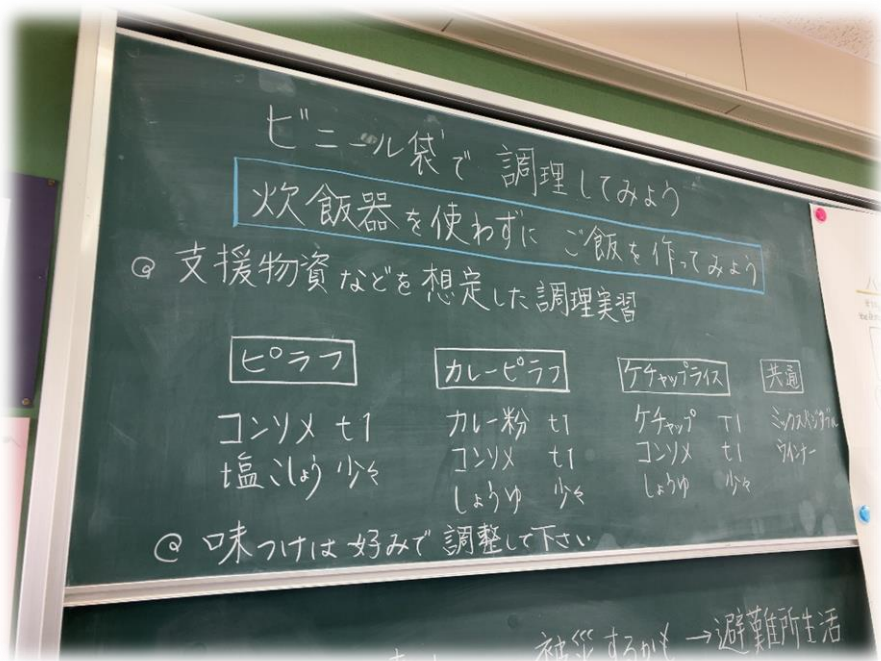 ビニール袋で調理してみよう
炊飯器を使わずに ご飯を作ってみよう
@ 支援物資などを想定した調理実習
ピラフ
コンソメ t1
塩こしょう 少々
カレーピラフ
カレー粉 t1
コンソメ t1
しょうゆ 少々
ケチャップライス
ケチャップ T1
コンソメ t1
しょうゆ 少々
共通
ミックスベジタブル
ウインナー
@ 味つけは好みで調整して下さい
被災するかも→避難所生活